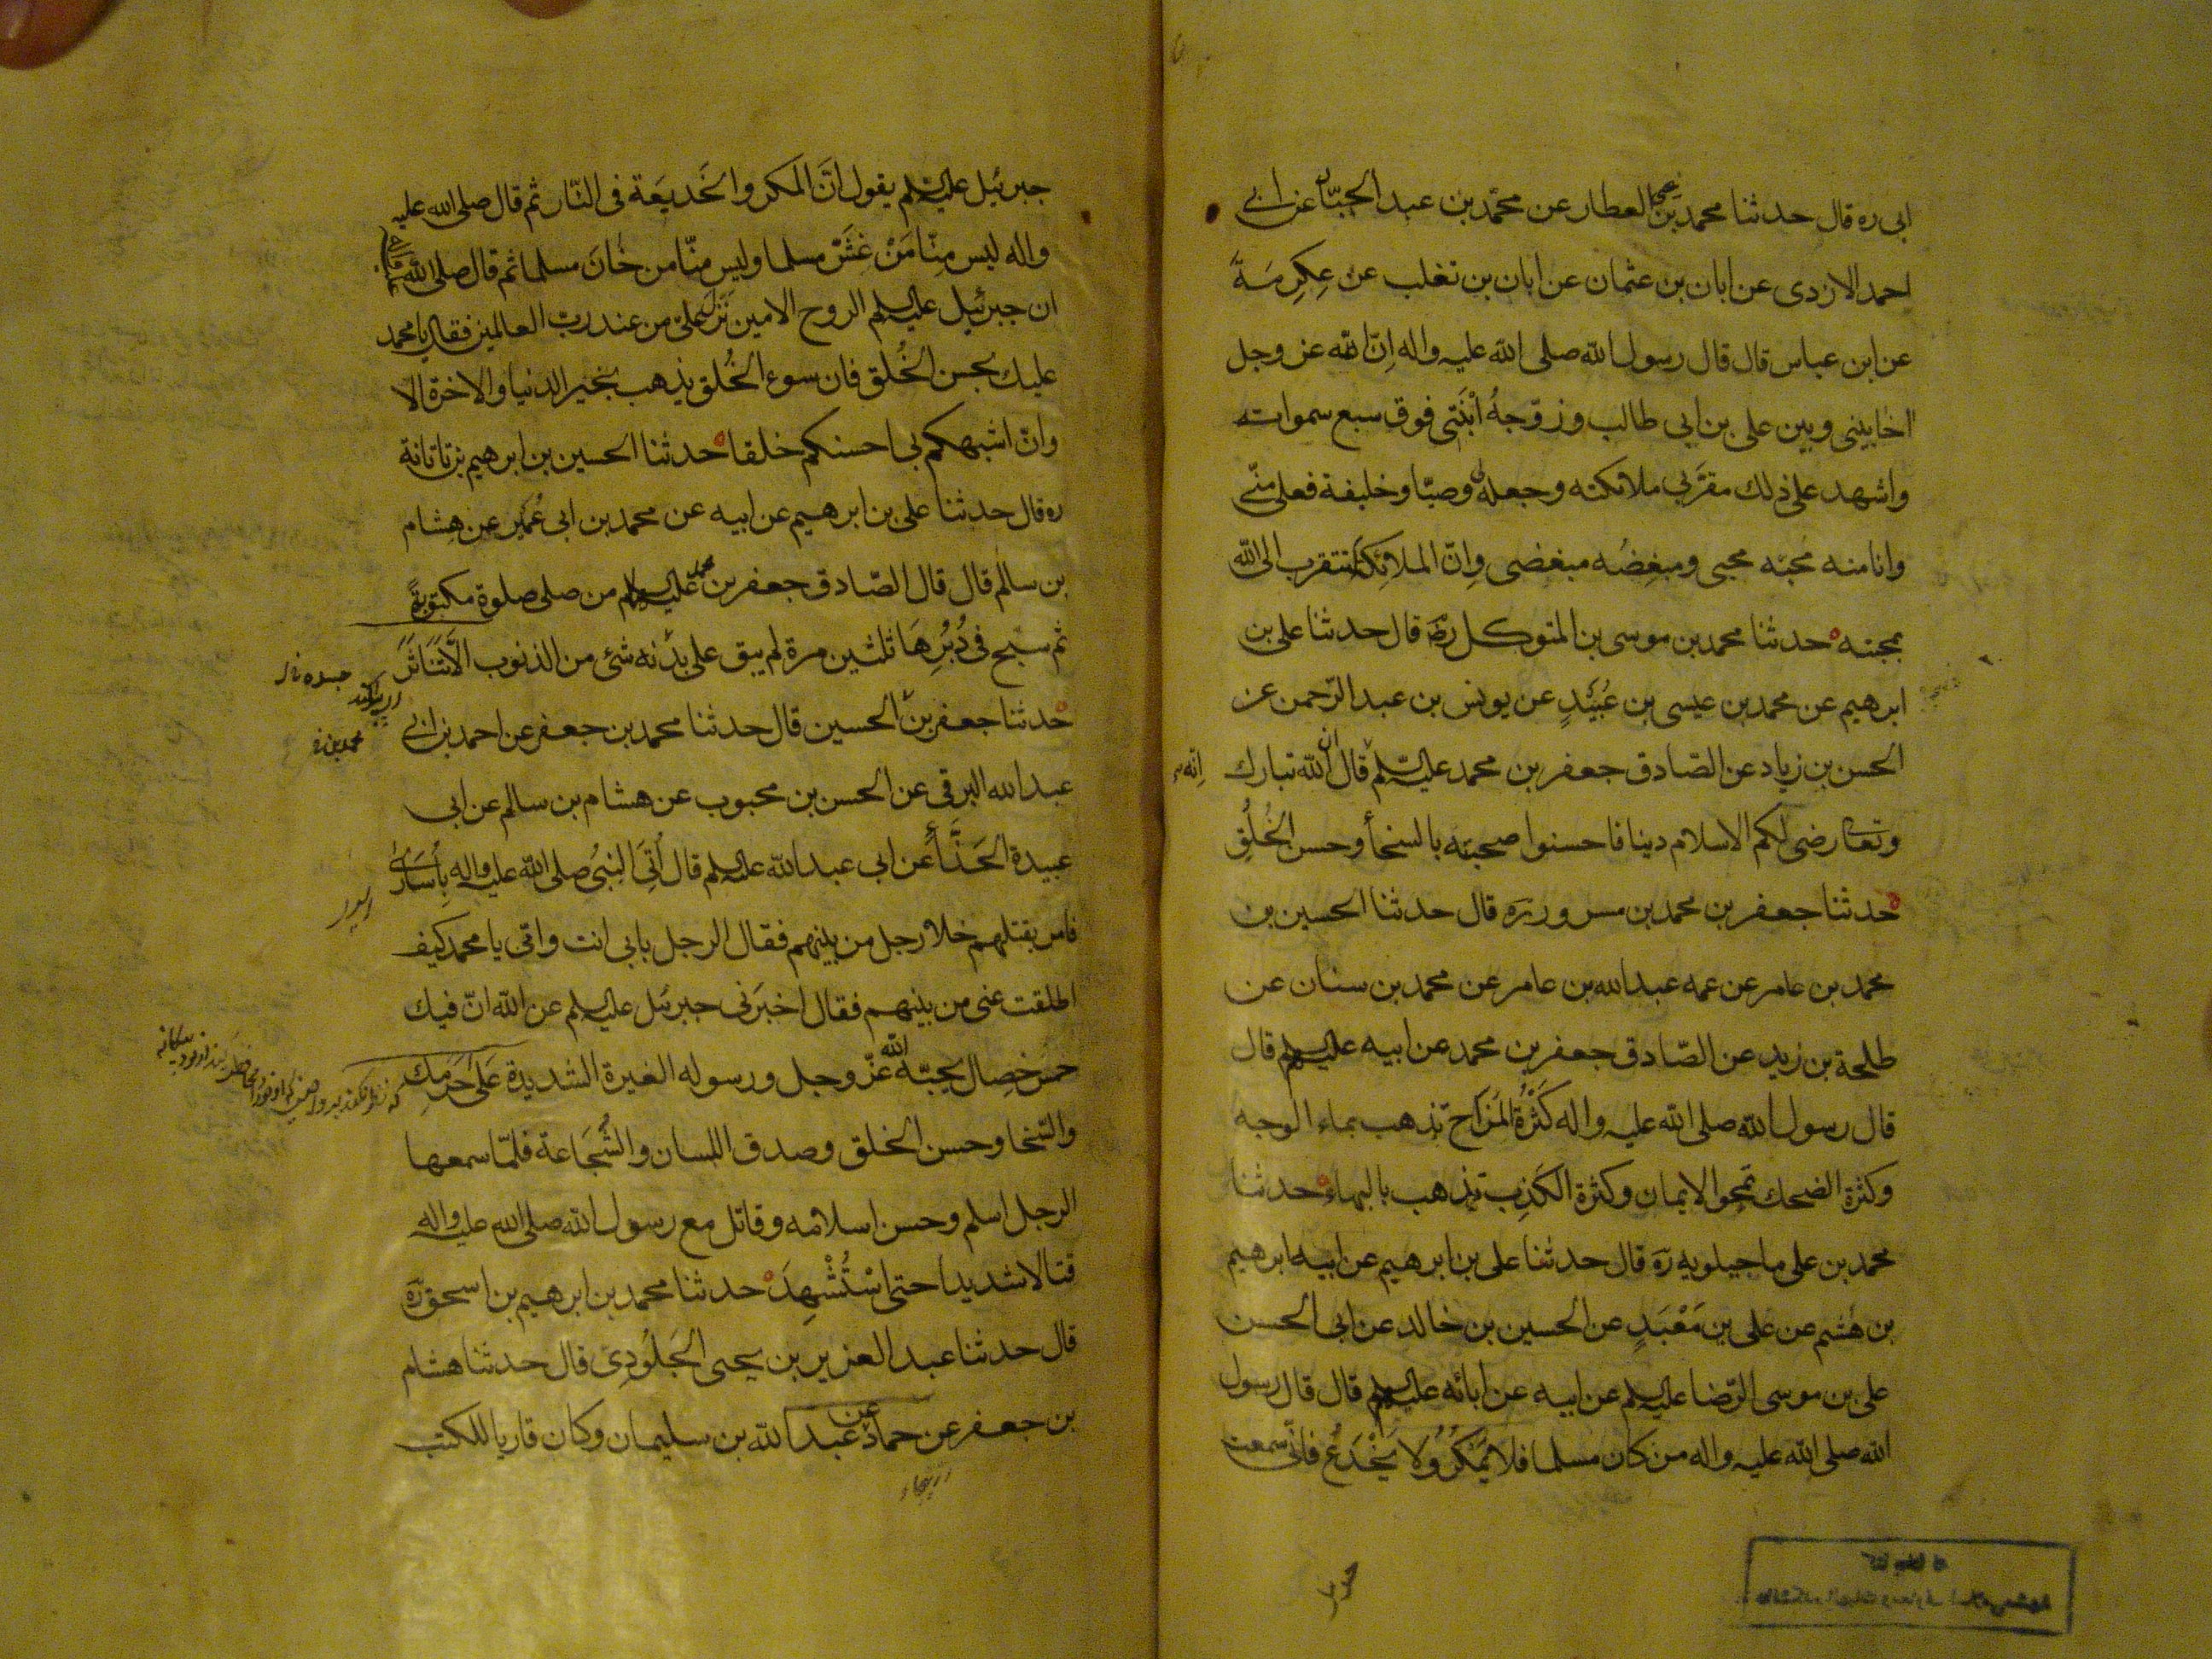 ابى ره قال حدثنا محمد بن يحيى العطار عن محمّد بن عبد الجبّار عن ابى
احمد الازدى عن ابان بن عثمان عن ابان بن تغلب عن عِكرِمَة
عن ابن عباس قال قال رسول الله صلى الله عليه واله اِنّ الله عز وجل
اخا بينى وبين على بن ابى طالب وزوّجهُ اْبنَتى فوق سبع سمواته
واشهد على ذلك مقرَّبى ملائكته وجعله لى وصيّا وخليفة فعلى منّى
وانا منه محبّه محبى ومبغِضُه مبغضى وانّ الملائكة لتتقرب الى الله
بمحبته حدثنا محمد بن موسى بن المتوكل رضَ قال حدثنا على بن
ابرهيم عن محمد بن عيسى بن عُبَيْدٍ عن يونس بن عبد الرّحمن عن
الحسن بن زياد عن الصّادق جعفر بن محمد عليه السّلم قال ان الله تبارك
وتعا رضى لكم الاسلام دينا فاحسنوا صحبته بالسخاْ وحسن الخُلُقِ
حدثنا جعفر بن محمد بن مسرور رَه قال حدثنا الحسين بن
محمد بن عامر عن عمه عبد الله بن عامر عن محمد بن سنان عن
طلحة بن زيد عن الصّادق جعفر بن محمد عن ابيه عليهم السلم قال
قال رسول الله صلى الله عليه واله كَثْرةُ المَزَاحِ تذهب بماء الوجه
وكثرة الضحك تمحوا الايمان وكثرة الكَذِب تذهب بالبهاء حدثنا
محمد بن على ماجيلويه رَه قال حدثنا على بن ابرهيم عن ابيه ابرهيم
بن هشم عن على بن مَعْبَدٍ عن الحسين بن خالد عن ابى الحسن
على بن موسى الرّضا عليه السلم عن ابيه عن ابائه عليهم السلم قال قال رسول
الله صلى الله عليه واله من كان مسلما فلا يَمْكُرُ ولا يَخْدَعُ فانّى سمعت
جبرئيل عليه السّلم يقول انَّ المَكر والخَديعَة فى النّار ثم قال صلى الله عليه
واله ليس مِنّا مَنْ غَشَّ مسلما وليس منّا من خٰانَ مسلما ثم قال صلى الله
ان جبرئيل عليه السلم الروح الامين نَزَلَ علىّ من عند ربّ العالمين فقال يا محمد
عليك بحسن الخُلق فان سوء الخُلق يذهب بخير الدنيا والاخرة الا
وانّ اشبهكم بى احسنكم خلقا حدثنا الحسين بن ابرهيم بن تاتانة
ره قال حدثنا على بن ابرهيم عن ابيه عن محمد بن ابى عُمَيْر عن هِشام
بن سالم قال قال الصّادق جعفر بن محمد عليه السلم من صلى صلوة مكتوبةً
ثم سبّح فى دُبُرِهَا ثلثين مرة لم يبق على بدَنه شئ من الذنوب الّا تَنَاثَرَ
حدثنا جعفر بن الحسين قال حدثنا محمد بن جعفر عن احمد بن ابى
عبد الله البرقى عن الحسن بن محبوب عن هشام بن سالم عن ابى
عبيدة الحَذَّاْ عن ابى عبد الله عليه السلم قال اُتِىَ النبىُّ صلى الله عليه واله بِاُسَارىٰ
فامر بقتلهم خلا رجل من بينهم فقال الرجل بابى انت وامّى يا محمد كيف
اطلقت عنى من بينهم فقال اخبَرنى جبرئيل عليه السلم عن الله انّ فيك
خمسَ خصال يحبّه الله عزّ وجل ورسوله الغيرة الشديدة عَلَى حَرَمِك
والسّخا وحسن الخلق وصدق اللسان والشَجَاعة فلمّا سمعها
الرجل اسلم وحسن اسلامه وقاتل مع رسول الله صلى الله عليه واله
قتالا شديدا حتى اسْتُشْهِدَ حدثنا محمد بن ابرهيم بن اسحق رَه
قال حدثنا عبد العزيز بن يحيى الجَلُودِى قال حدثنا هشام
بن جعفر عن حماد عن عبد الله بن سليمان وكان قاريا للكتب